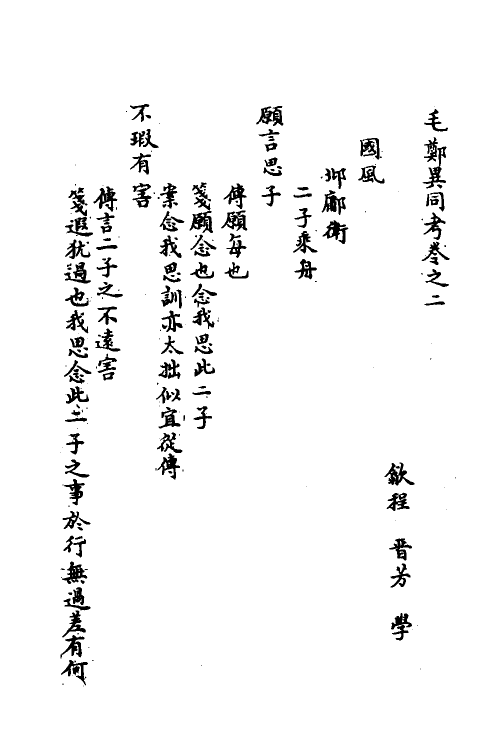 毛鄭異同考卷之二
歙程 晉芳 學
國風
邶鄘衛
二子乘舟
願言思子
傳願每也
箋願念也念我思此二子
案念我思訓亦太拙似宜從傳
不瑕有害
傳言二子之不遠害
箋遐犹過也我思念此二子之事於行無過差有何